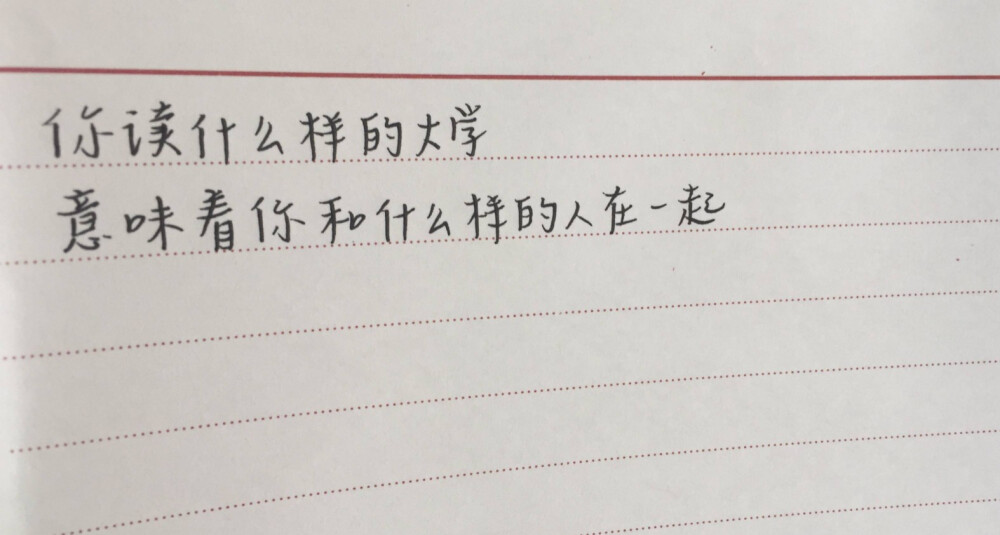 你读什么样的大学
意味着你和什么样的人在一起